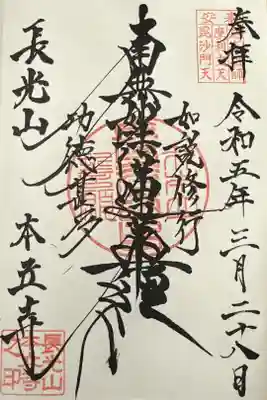 奉拝
令和五年三月二十八日
如説修行
南無妙法蓮華経
功徳甚多
長光山 本立寺
毘沙門天
長光山
本立寺
之印